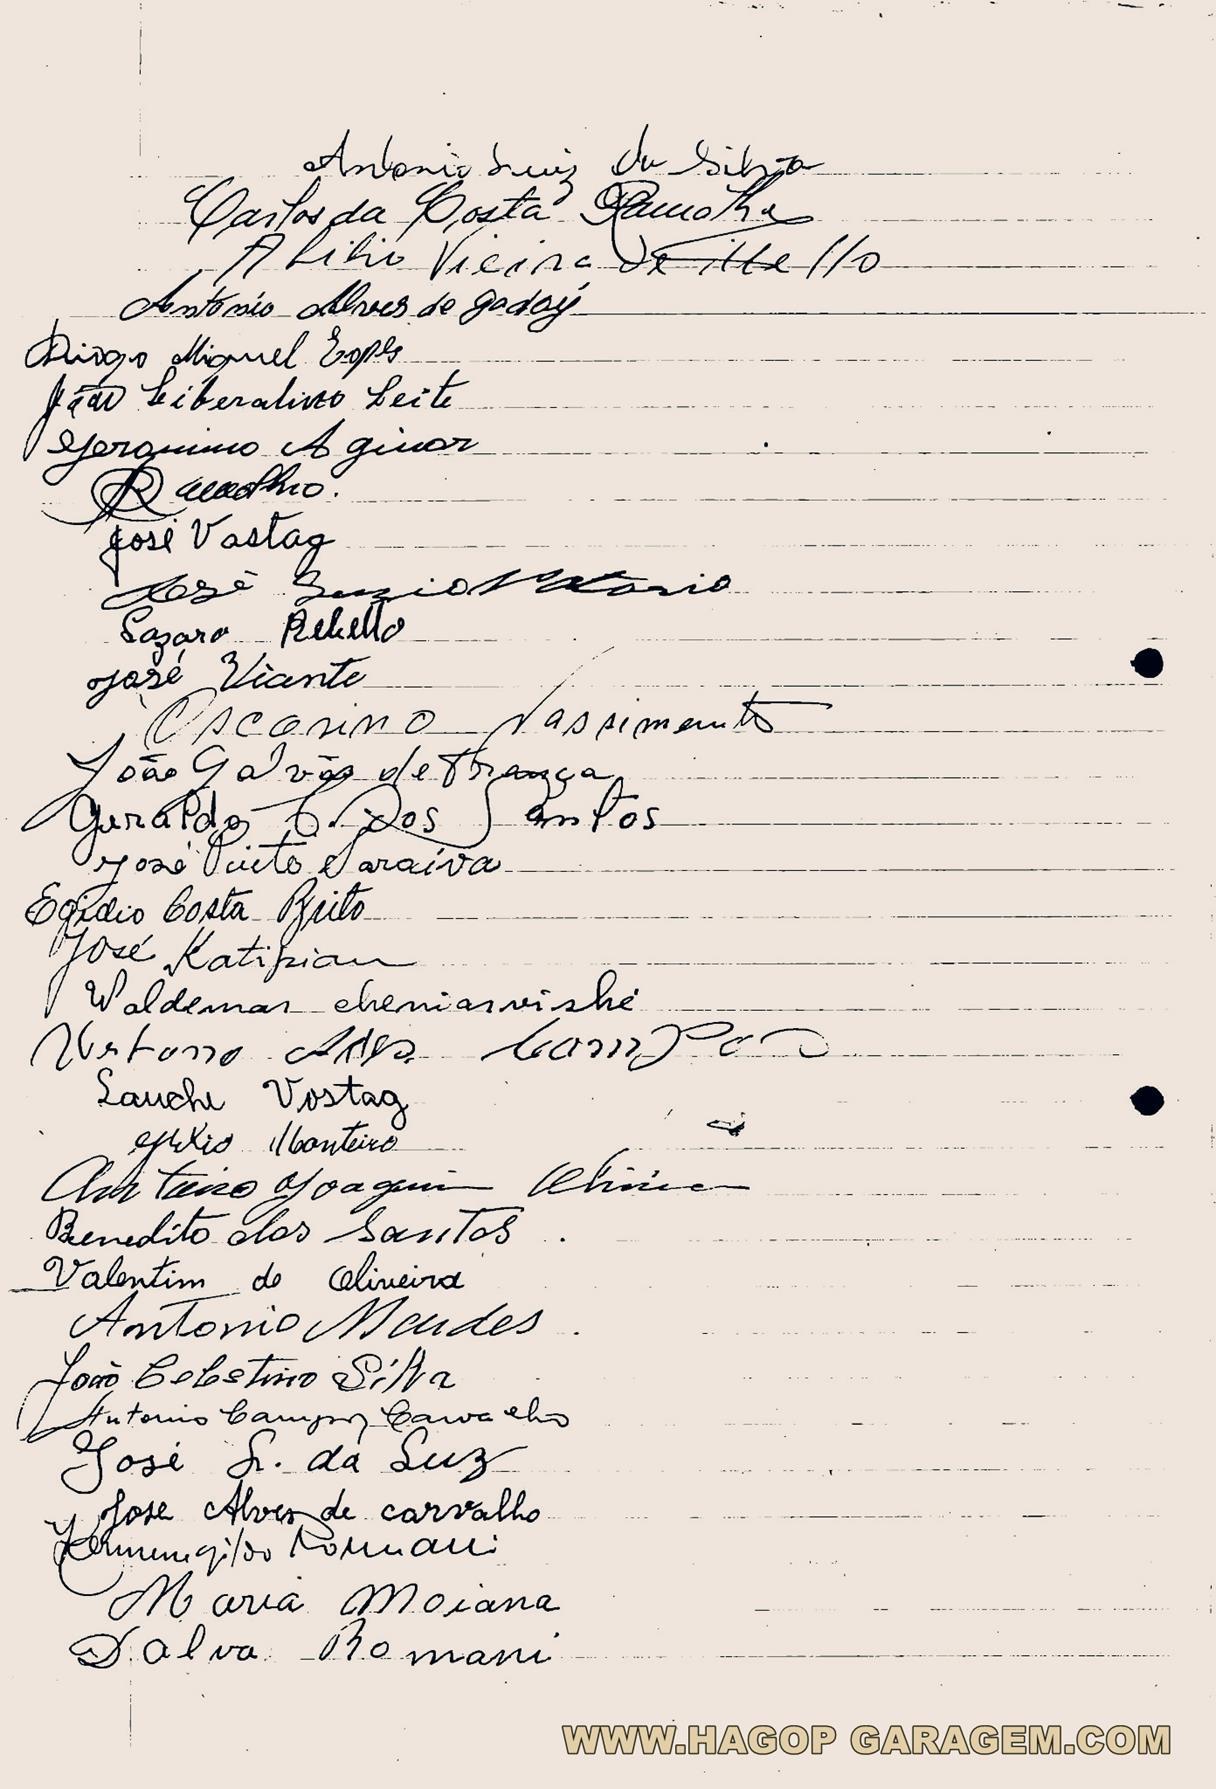 Antonio Luiz da Silva
Carlos da Costa Ramalho
Abilio Vieira de Mello
António Alves de Godoy
Diogo Miguel Lopes
João Liberalino Leite
Geronimo Aginor
Ramalho.
José Vastag
José Luzio
Lazaro Rebello
José Viante
Oscarino Nassimento
João Galvão de França
Geraldo F. Dos Santos
José Pinto Saraiva
Egidio Costa Brito
José Katipian
Waldemar cherniarvishé
Campos
Vostag
Monteiro
Joaquim
Benedito dos Santos
Valentim de Oliveira
Antonio Mendes
João Celestino Silva
Antonio Campos Carvalho
José L. da Luz
Jose Alves de carvalho
Hermenegildo Romani
Maria Moiana
Dalva Romani
WWW.HAGOP GARAGEM.COM